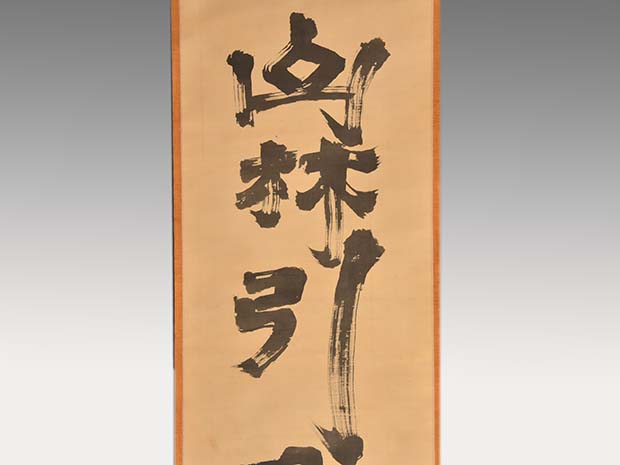 山林引